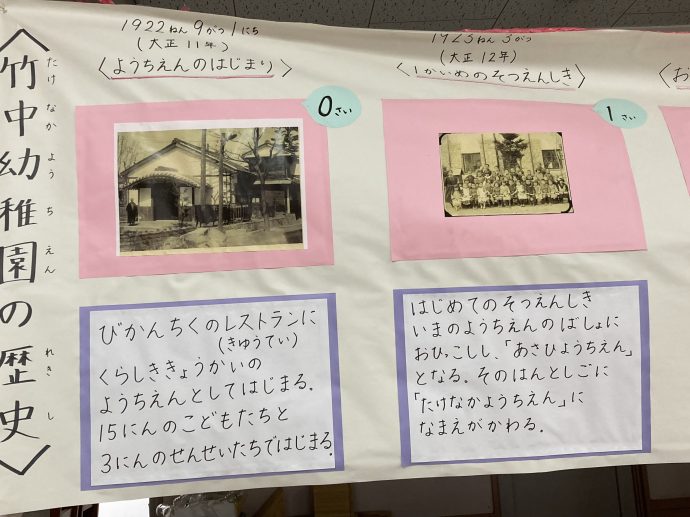 〈竹中幼稚園の歴史〉
たけなかようちえん れきし
1922ねん 9がつ 1にち
(大正11年)
〈ようちえんのはじまり〉
0さい
びかんちくのレストランに
(きゅうてい)
くらしききょうかいの
ようちえんとしてはじまる.
15にんのこどもたちと
3にんのせんせいたちではじまる.
1923ねん 3がつ
(大正12年)
〈1かいめのそつえんしき〉
1さい
はじめてのそつえんしき
いまのようちえんのばしょに
おひっこしし、「あさひようちえん」
となる. そのはんとしごに
「たけなかようちえん」に
なまえがかわる.
〈お